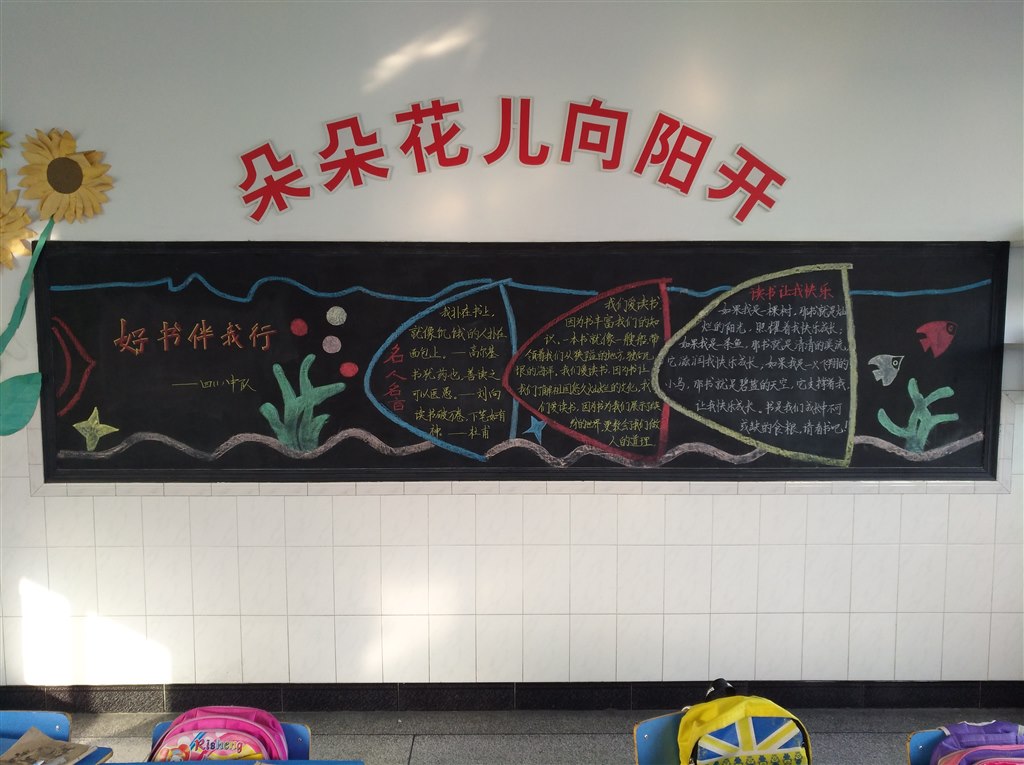 朵朵花儿向阳开
好书伴我行
——四(1)中队
名人名言
我扑在书上,
就像饥饿的人扑在
面包上。——高尔基
书犹药也,善读之
可以医愚。——刘向
读书破万卷,下笔如有
神。——杜甫
我们爱读书,
因为书丰富我们的知
识、一本书就像一艘船带
领着我们从狭隘的地方,驶向无
限的海洋,我们爱读书,因为书让
我们了解祖国悠久灿烂的文化,我
们爱读书,因为书为我们展示缤
纷的世界,更教会我们做
人的道理
读书让我快乐
如果我是一棵树,那书就是灿
烂的阳光,照耀着我快乐成长,
如果我是一条鱼,那书就是清清的溪流,
它滋润我快乐成长,如果我是一只
小鸟,那书就是蓝蓝的天空,它支撑着我
让我快乐成长。书是我们成长中不可
或缺的食粮,请看书吧!
Kisheng